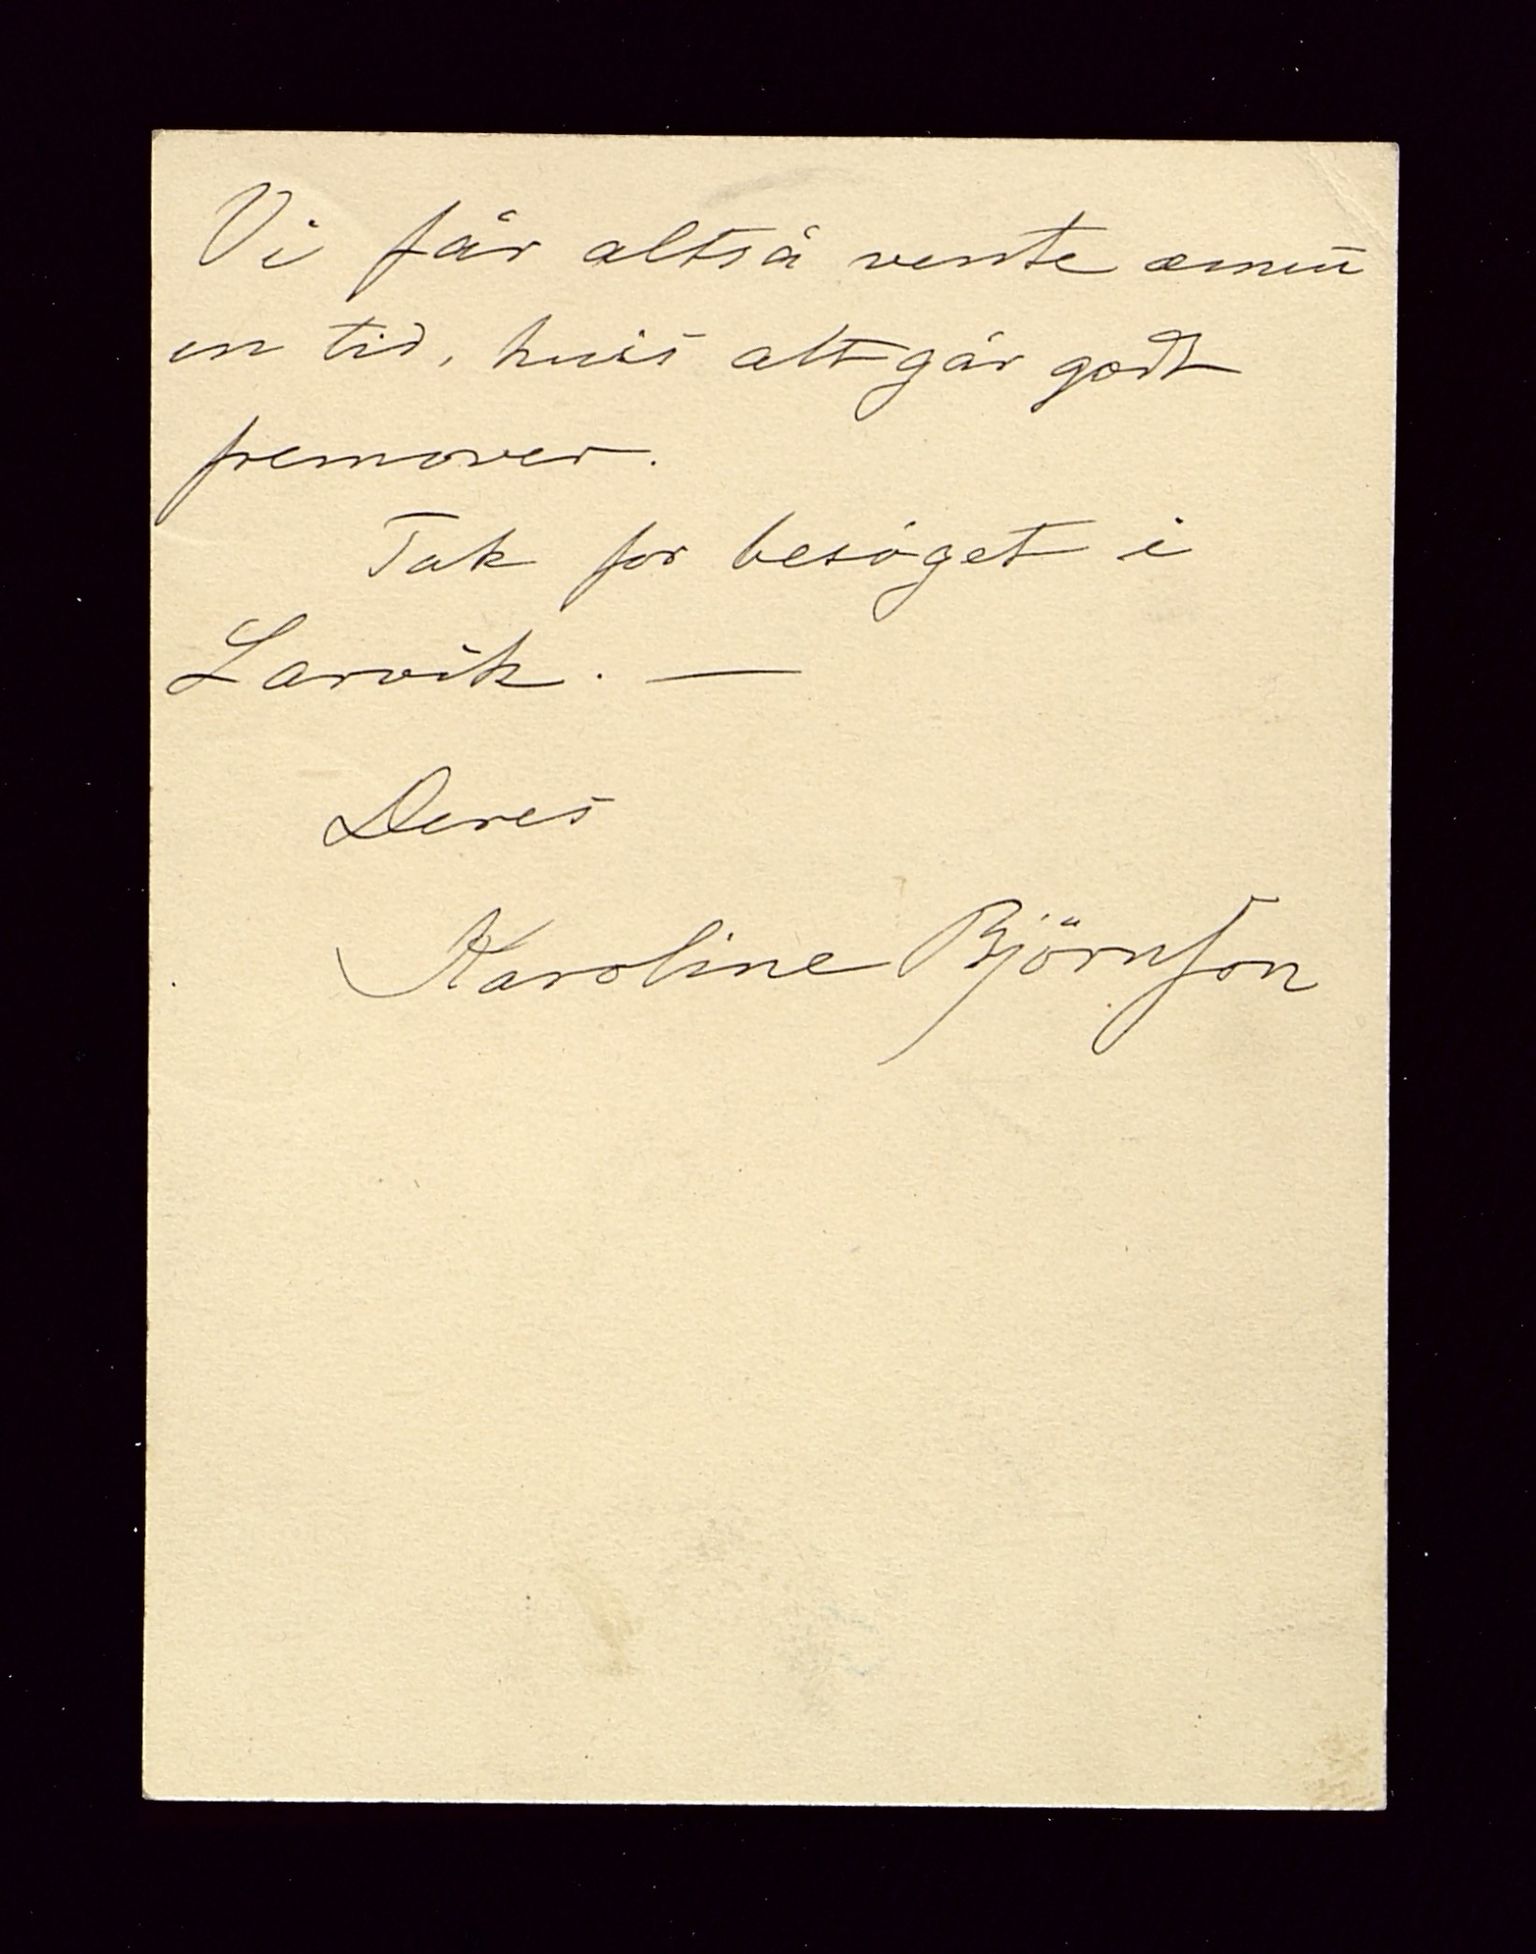 Vi får altså vente ænnu
en tid, hvis alt går godt
fremover.
Tak for besøget i
Larvik. —
Deres
Karoline Björnson